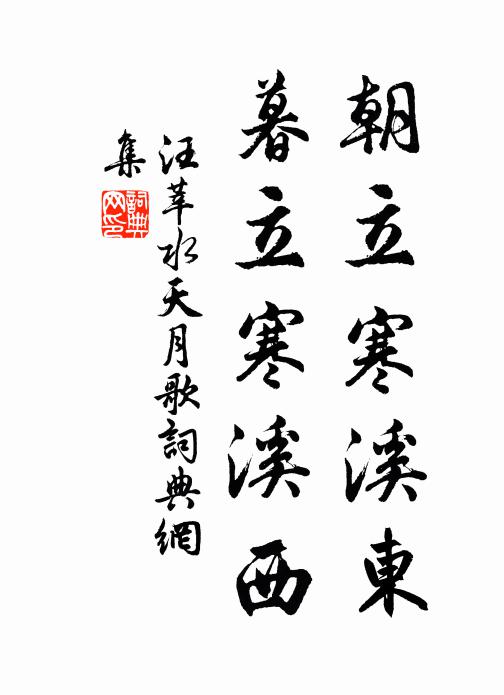 朝立寒溪東
暮立寒溪西
汪莘水天月歌詞典網
集
詞典网印